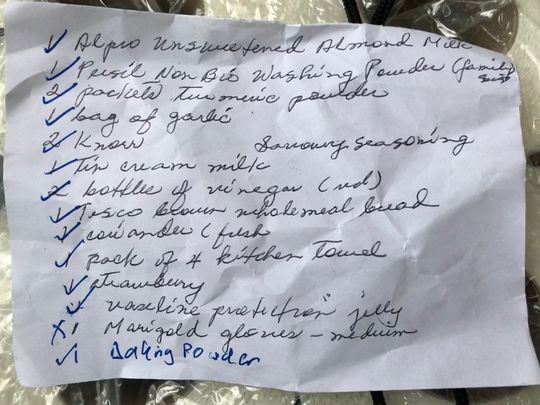 1 Alpro Unsweetened Almond Milk
1 Persil Non Bio Washing Powder (family
2 packets Turmeric powder
1 bag of garlic
2 Knorr Savoury seasoning
1 Tin cream milk
2 bottles of vinegar (red)
1 Tesco brown wholemeal bread
1 coriander (fresh
1 pack of 4 kitchen Towel
1 strawberry
1 vaseline protection jelly
X 1 Marigold gloves - medium
1 Baking Powder